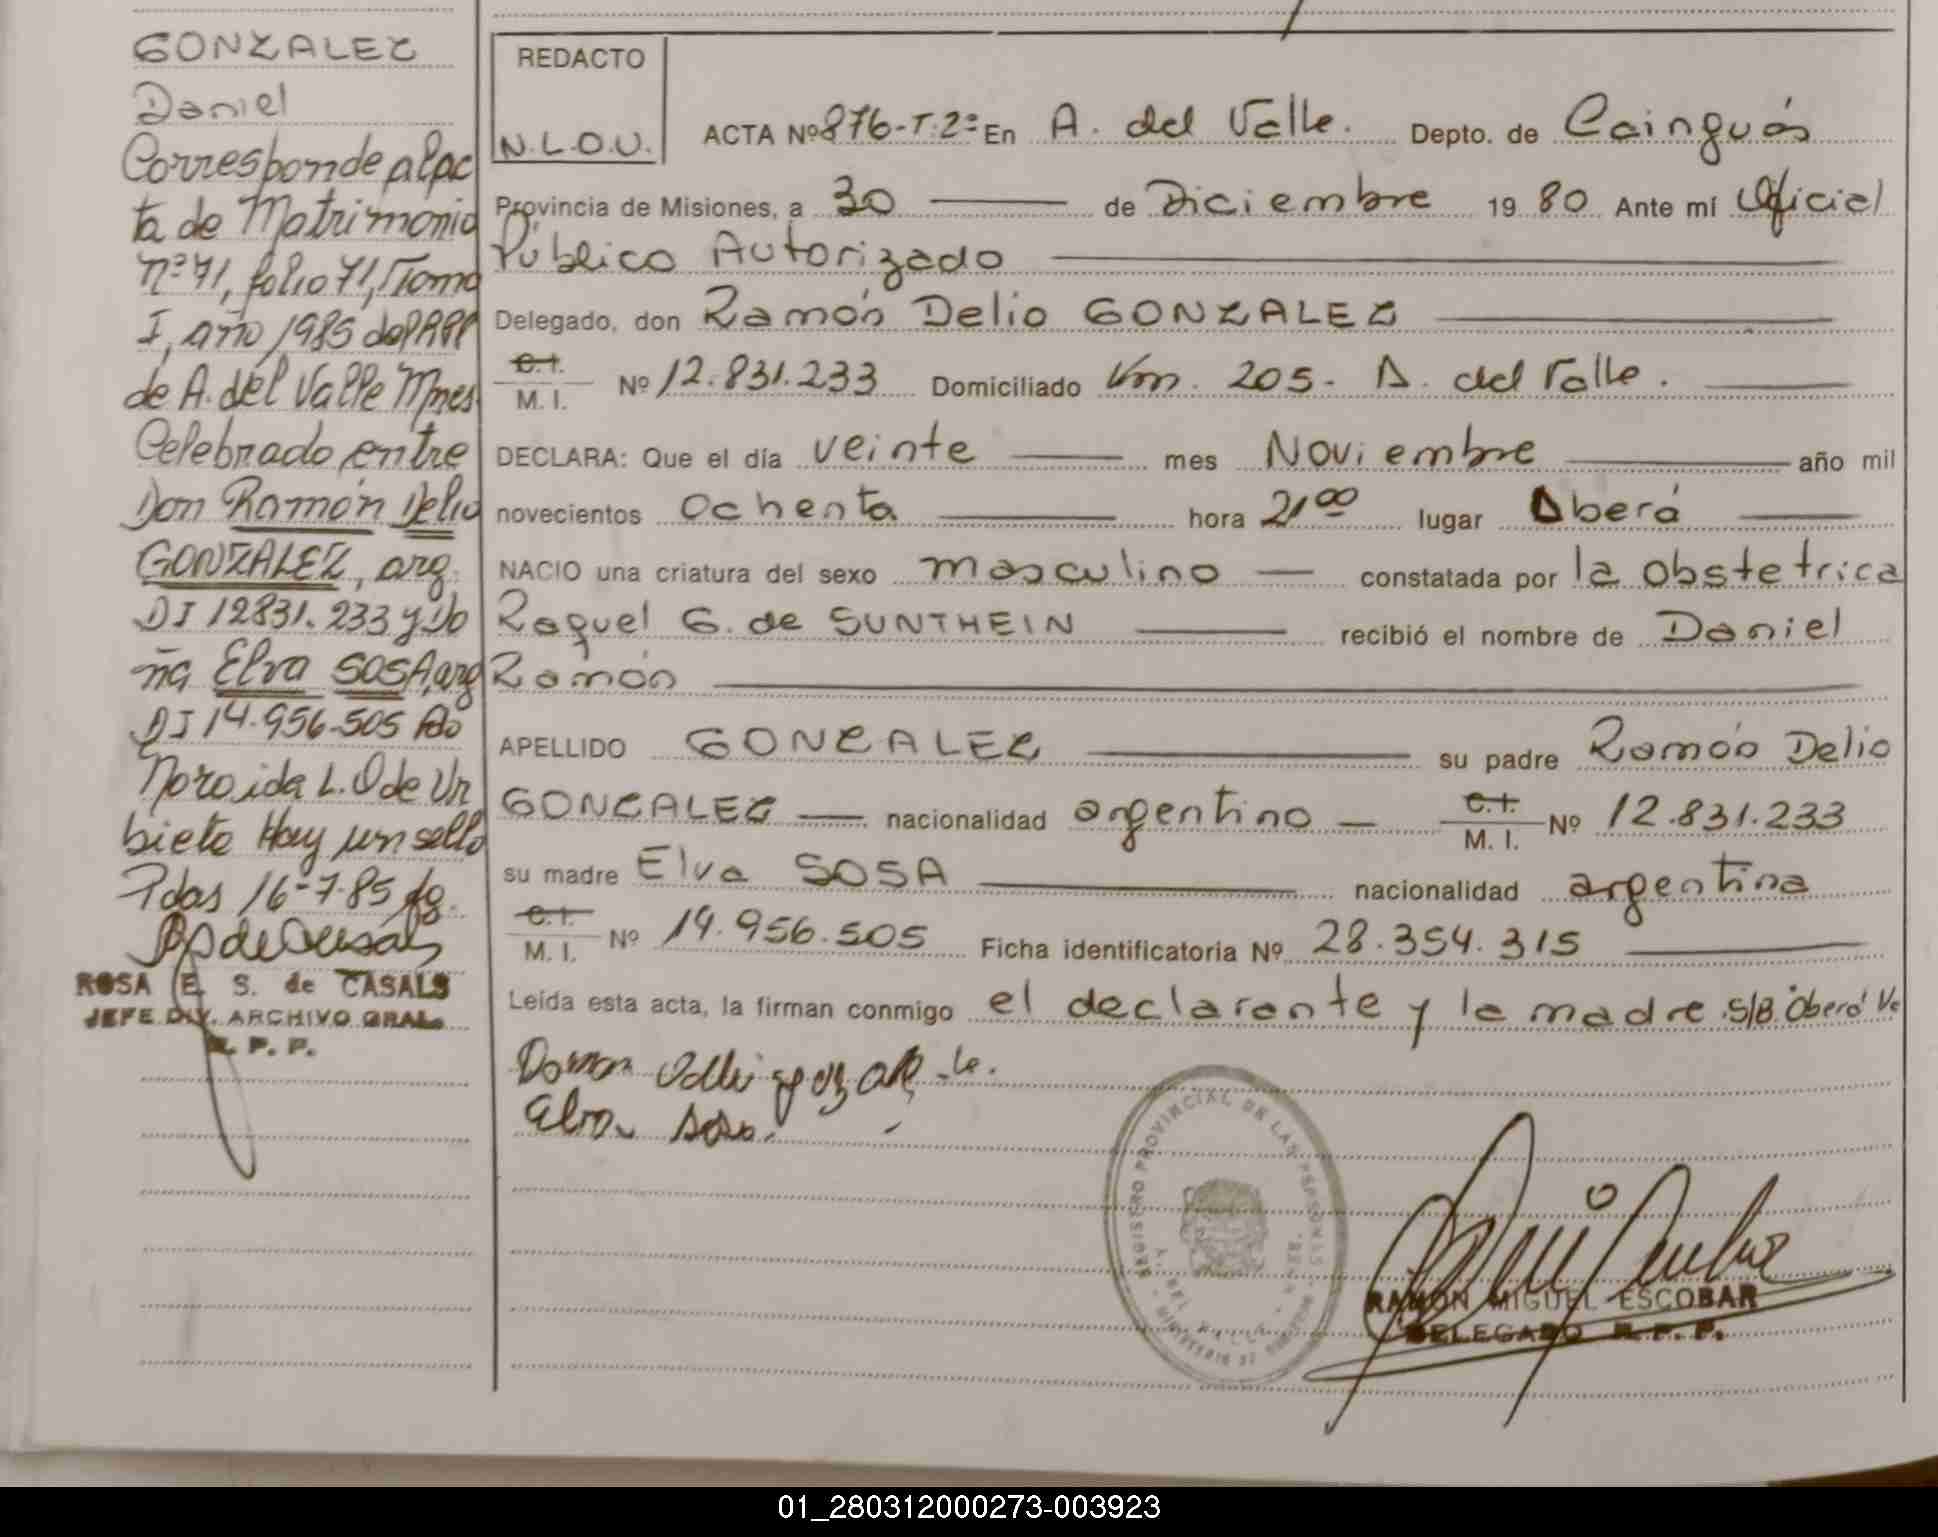 GONZALEZ
Daniel
Corresponde al ac
ta de Matrimonio
Nº 71, folio 71, Tomo
I, año 1985 del RPP
de A. del Valle Mnes
Celebrado entre
Don Ramón Delio
GONZALEZ, arg.
DI 12831.233 y Do
ña Elva SOSA, arg
DI 14.956.505 Fdo
Noroida L. O de Ur
bieta Hay un sello
Pdas 16-7-85 fg.
ROSA E. S. de CASALS
JEFE DIV. ARCHIVO GRAL.
R. P. P.
REDACTO
N.L.O.U.
ACTA Nº 876-T.2º En A. del Valle. Depto. de Cainguás
Provincia de Misiones, a 30 de Diciembre 19 80 Ante mí Oficial
Público Autorizado
Delegado, don Ramón Delio GONZALEZ
C.I.
M. I. Nº 12.831.233 Domiciliado Km. 205. A. del Valle.
DECLARA: Que el día veinte mes Noviembre año mil
novecientos ochenta hora 21⁰⁰ lugar Oberá
NACIO una criatura del sexo masculino constatada por la obstetrica
Raquel G. de SUNTHEIN recibió el nombre de Daniel
Ramón
APELLIDO GONZALEZ su padre Ramón Delio
GONZALEZ nacionalidad argentino C.I. M. I. Nº 12.831.233
su madre Elva SOSA nacionalidad argentina
C.I.
M. I. Nº 14.956.505 Ficha identificatoria Nº 28.354.315
Leída esta acta, la firman conmigo el declarante y la madre. S/B. Oberá Ve
Elva Sosa.
REGISTRO PROVINCIAL DE LAS PERSONAS
A. DEL VALLE
RAMON MIGUEL ESCOBAR
DELEGADO R. P. P.
01_280312000273-003923